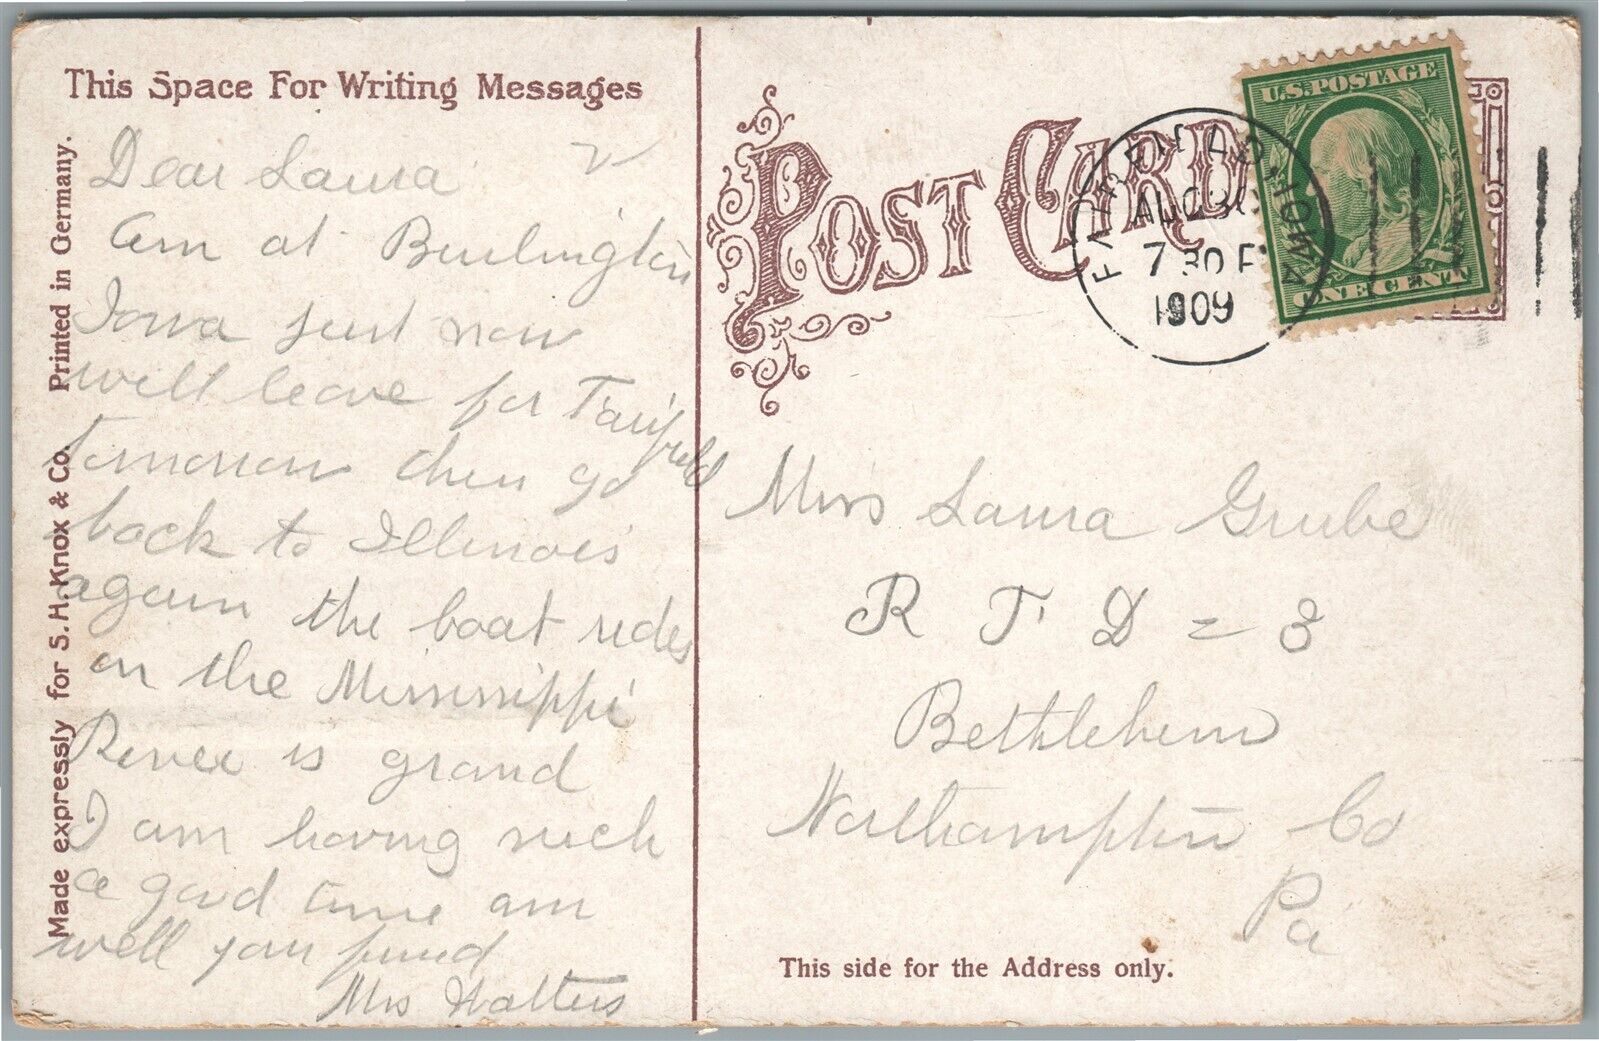 This Space For Writing Messages
Dear Laura
Am at Burlington
Iowa just now
will leave for Fairfield
tomorrow then go
back to Illinois
again the boat rides
on the Mississippi
River is grand
I am having such
a good time am
well your friend
Mrs Walters
Made expressly for S. H. Knox & Co. Printed in Germany.
POST CARD
U.S. POSTAGE
ONE CENT
FAIRFIELD IOWA
AUG 30
7 30 P
1909
Miss Laura Grube
R F D = 3
Bethlehem
Northampton Co
Pa
This side for the Address only.